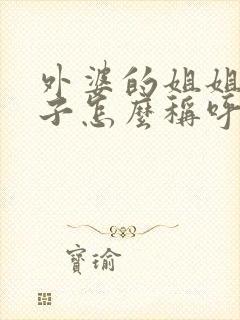 外婆的姐姐
子怎麼稱呼
寶瑜